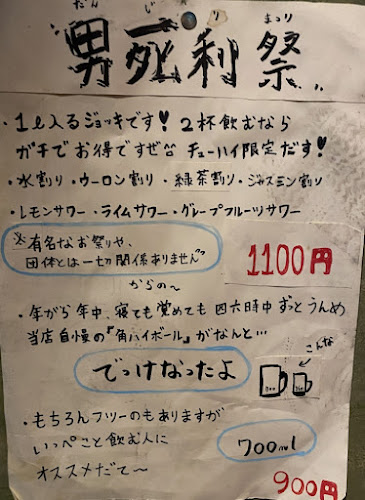 だん じ り まつり
男死利祭
・1ℓ入るジョッキです♥ 2杯飲むなら
ガチでお得ですぜ^^ チューハイ限定だす♥
・水割り・ウーロン割り・緑茶割り・ジャスミン割り
・レモンサワー・ライムサワー・グレープフルーツサワー
※有名なお祭りや、
団体とは一切関係ありません"
1100円
からの〜
・年がら年中、寝ても覚めても四六時中ずっとうんめ
当店自慢の『角ハイボール』がなんと…
こんな
でっけなったよ
・もちろんフツーのもありますが
いっぺこと飲む人に
オススメだて〜
700ml
900円